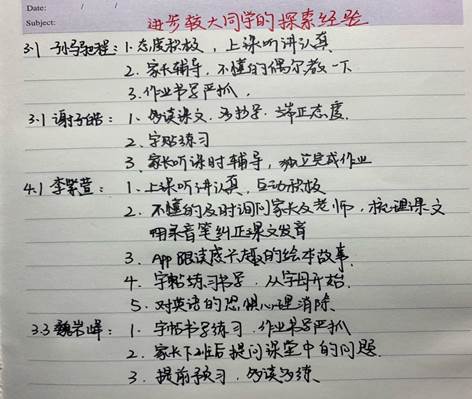 Date: / /
Subject:
进步较大同学的探索经验
3.1 孙马驰程：1.态度积极，上课听讲认真
2. 家长辅导，不懂的偶尔教一下
3.作业书写严抓，
3.1 谢子皓：1、多读课文、多书写、端正态度.
2、字贴练习
3、家长听课时辅导，独立完成作业
4.1 李紫萱：1、上课听讲认真，互动积极
2、不懂的及时询问家长及老师，梳理课文
用录音笔纠正课文发音
3、App跟读感兴趣的绘本故事.
4、字帖练习书写，从字母开始.
5、对英语的恐惧心理消除.
3.3 魏岩峰：1、字帖书写练习，作业书写严抓
2、家长下班后提问课堂中的问题.
3、提前预习，多读多练.